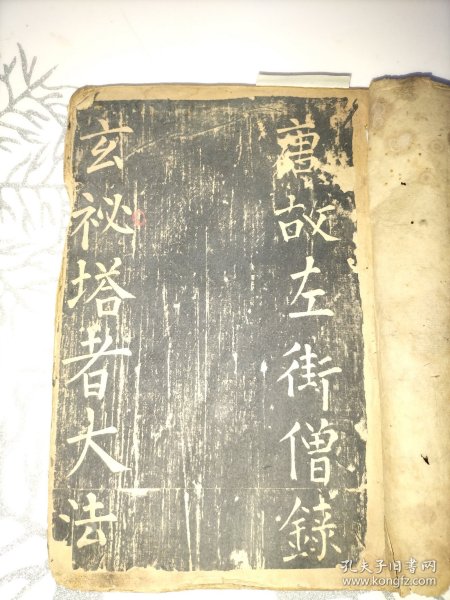 唐故左街僧錄
玄祕塔者大法
孔夫子旧书网
www.kongfz.com